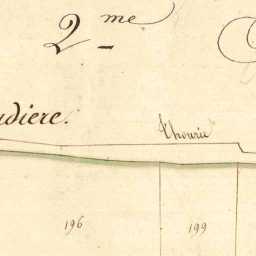 2.me
udiere.
Thourie
196
199